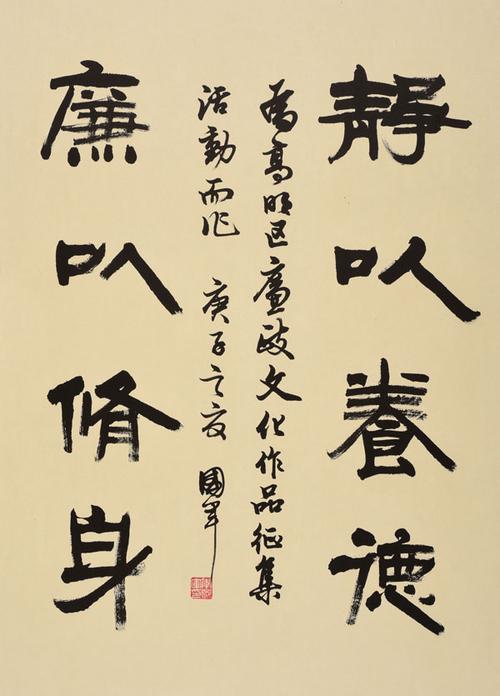 靜以養德
為高明区廉政文化作品征集
活動而作 庚子之夏 國军
廉以脩身